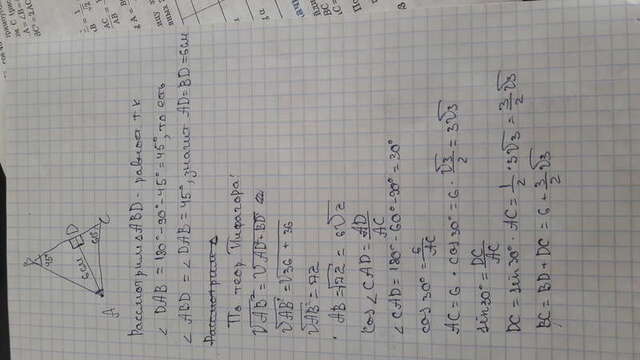 B
45°
6 см
D
A
60°
C
Рассмотрим ΔABD - равноб т к
∠ DAB = 180° - 90° - 45° = 45°, то есть
∠ ABD = ∠ DAB = 45°, значит AD = BD = 6 см
Рассмотрим Δ
По теор Пифагора:
√AB² = √AD + BD
√AB² = √36 + 36
√AB² = 72
AB = √72 = 6√2
cos ∠ CAD = AD/AC
∠ CAD = 180° - 60° - 90° = 30°
cos 30° = 6/AC
AC = 6 · cos 30° = 6 · √3/2 = 3√3
sin 30° = DC/AC
DC = sin 30° · AC = 1/2 · 3√3 = 3/2 √3
BC = BD + DC = 6 + 3/2 √3